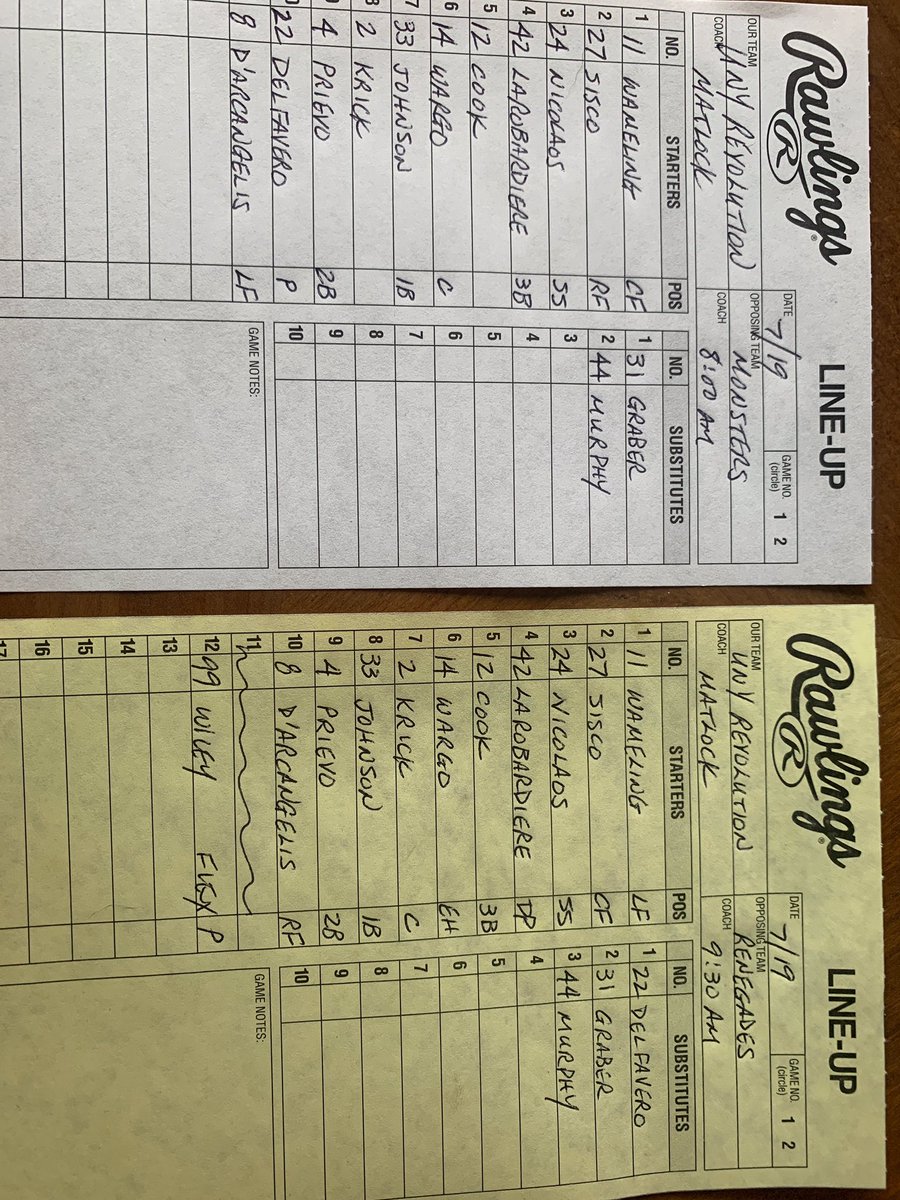 Rawlings®
R
LINE-UP
OUR TEAM UNY REVOLUTION
DATE 7/19
GAME NO. (circle) 1 2
OPPOSING TEAM MONSTERS
COACH MATLOCK
COACH 8:00 AM
NO. STARTERS POS
1 11 WAMELING CF
2 27 SISCO RF
3 24 NICOLAOS SS
4 42 LAROBARDIERE 3B
5 12 COOK
6 14 WARGO C
7 33 JOHNSON 1B
8 2 KRICK
9 4 PRIEVO 2B
0 22 DELFAVERO P
8 D'ARCANGELIS LF
NO. SUBSTITUTES
1 31 GRABER
2 44 MURPHY
3
4
5
6
7
8
9
10
GAME NOTES:
Rawlings®
R
LINE-UP
OUR TEAM UNY REVOLUTION
DATE 7/19
GAME NO. (circle) 1 2
OPPOSING TEAM RENEGADES
COACH MATLOCK
COACH 9:30 AM
NO. STARTERS POS
1 11 WAMELING LF
2 27 SISCO CF
3 24 NICOLAOS SS
4 42 LAROBARDIERE DP
5 12 COOK 3B
6 14 WARGO EH
7 2 KRICK C
8 33 JOHNSON 1B
9 4 PRIEVO 2B
10 8 D'ARCANGELIS RF
11
12 99 WILEY FLEX P
13
14
15
16
17
NO. SUBSTITUTES
1 22 DELFAVERO
2 31 GRABER
3 44 MURPHY
4
5
6
7
8
9
10
GAME NOTES: